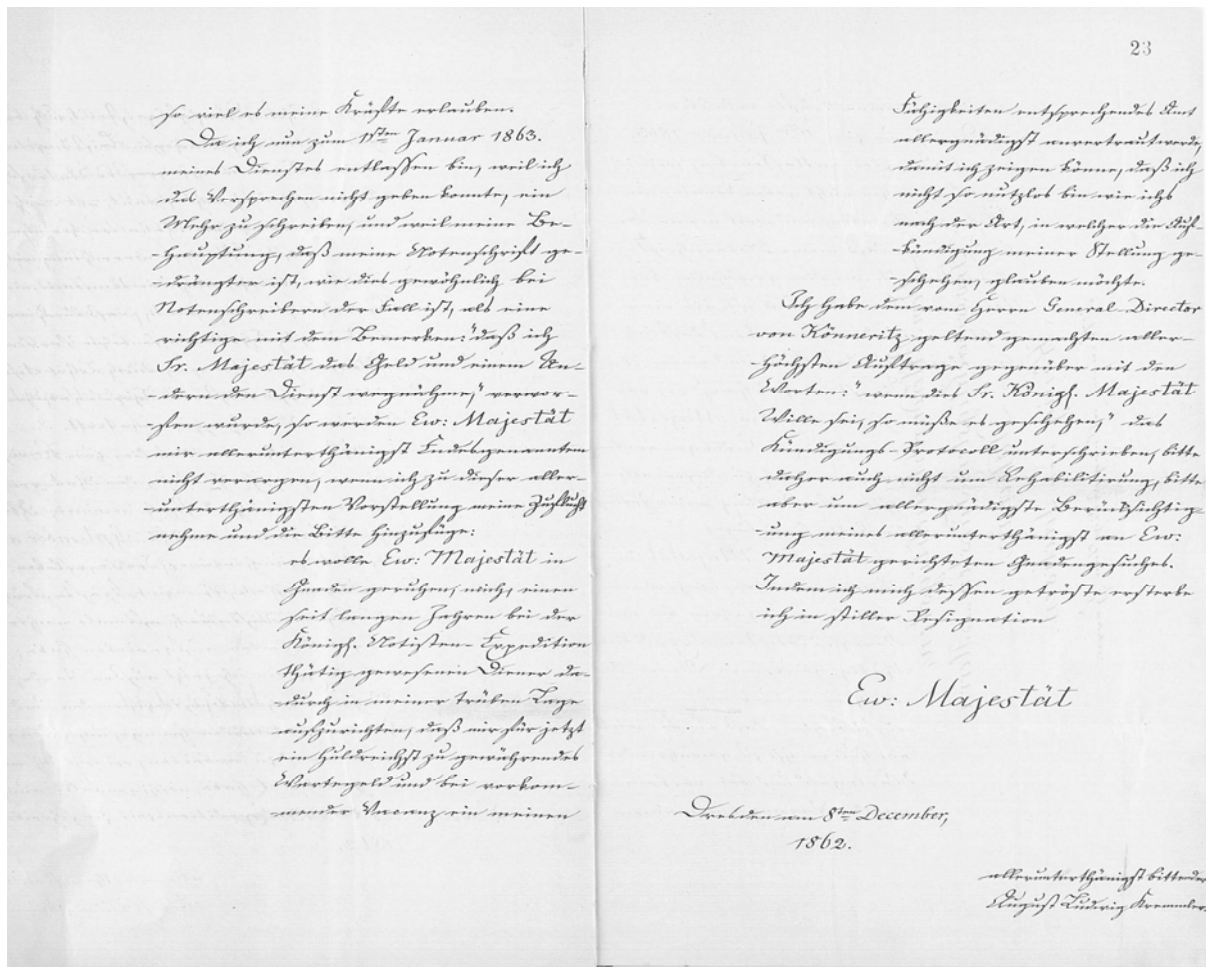 so viel es meine Kräfte erlauben.
Da ich nun zum 1sten Januar 1863.
meines Dienstes entlassen bin, weil ich
das Versprechen nicht geben konnte, ein
Mehr zu schreiben, und weil meine Be-
hauptung, daß meine Notenschrift ge-
drängter ist, wie dies gewöhnlich bei
Notenschreibern der Fall ist, als eine
richtige mit dem Bemerken: "daß ich
Sr. Majestät das Geld und einem An-
dern den Dienst wegnähme," verwor-
fen wurde, so werden Ew: Majestät
mir allerunterthänigst Endesgenanntem
nicht verargen, wenn ich zu dieser aller-
unterthänigsten Vorstellung meine Zuflucht
nehme und die Bitte hinzufüge:
es wolle Ew: Majestät in
Gnaden geruhen, mich, einen
seit langen Jahren bei der
Königl. Notisten-Expedition
thätig gewesenen Diener da-
durch in meiner trüben Lage
aufzurichten, daß mir für jetzt
ein huldreichst zu gewährendes
Wartegeld und bei vorkom-
mender Vacanz ein meinen
23
Fähigkeiten entsprechendes Amt
allergnädigst anvertraut werde,
damit ich zeigen könne, daß ich
nicht so nutzlos bin wie ichs
nach der Art, in welcher die Auf-
kündigung meiner Stellung ge-
schehen, glauben möchte.
Ich habe dem vom Herrn General-Director
von Könneritz geltend gemachten aller-
höchsten Auftrage gegenüber mit den
Worten: "wenn dies Sr. Königl. Majestät
Wille sei, so müße es geschehen," das
Kündigungs-Protocoll unterschrieben, bitte
daher auch nicht um Rehabilitirung, bitte
aber um allergnädigste Berücksichtig-
ung meines allerunterthänigst an Ew:
Majestät gerichteten Gnadengesuches.
Indem ich mich dessen getröste ersterbe
ich in stiller Resignation
Ew: Majestät
Dresden am 8ten December,
1862.
allerunterthänigst bittender
August Ludwig Kremmler.